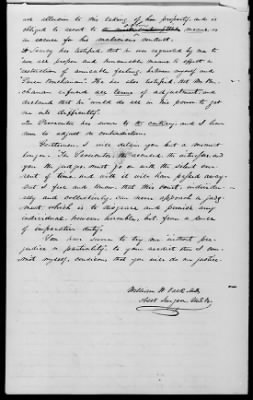 use allusion to this taking of his property, and is
obliged to resort to means
an excuse for his malicious conduct.
Dr Toney has testified that he was requested by me to
use all proper and honorable means to effect a
restoration of amicable feeling between myself and
Buchanan. He has also testified that Mr Bu-
chanan refused all terms of adjustment, and
declared that he would do all in his power to get
me into difficulty.
The Prosecutor has sworn to the contrary, and I have
sworn to adjust the contradiction.
Gentlemen, I will delay you but a moment
longer. The Prosecutor, the accused, the witnesses, and
you the judges, must go on with the silent cur-
rent of time, and with it will have passed away.
But I feel and know, that this court, individu-
ally and collectively, can never approach a judg-
ment, which is to disgrace and punish any
individual, however humble, but from a sense
of imperative duty.
You have sworn to try me without pre-
judice or partiality; to your verdict then I com-
mit myself, conscious that you will do me justice.
William H.
Asst Surgeon